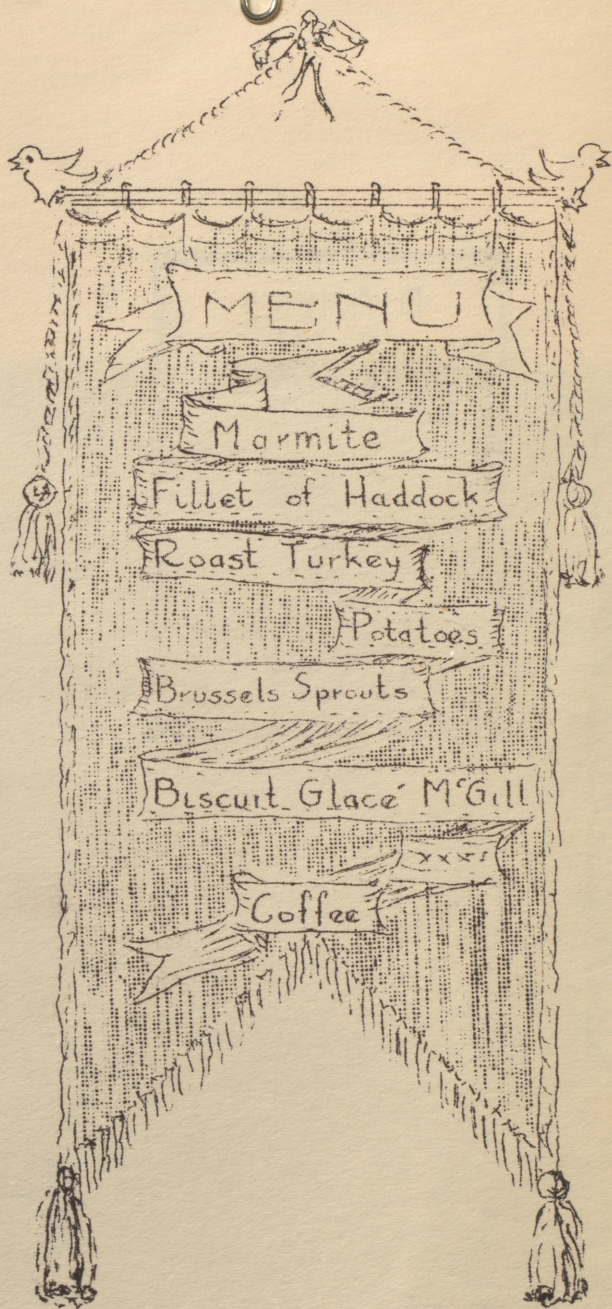 MENU
Marmite
Fillet of Haddock
Roast Turkey
Potatoes
Brussels Sprouts
Biscuit Glacé McGill
xxxi
Coffee